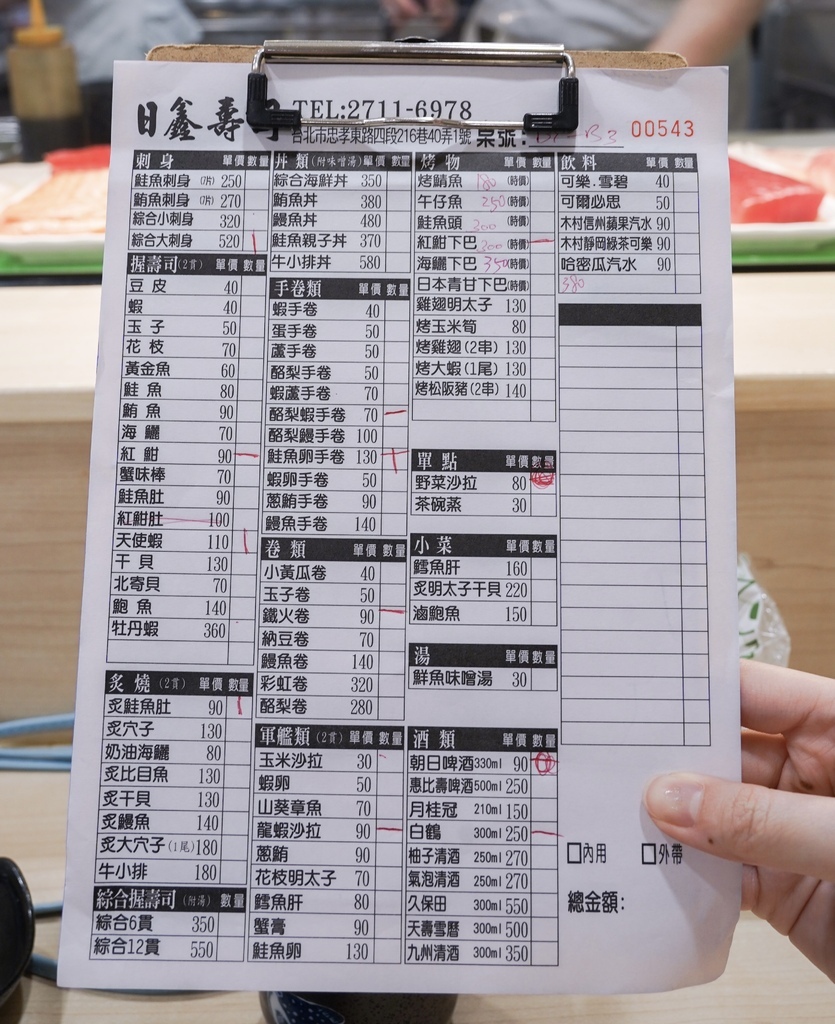 日鑫壽司 TEL:2711-6978
台北市忠孝東路四段216巷40弄1號 桌號: B3 00543
刺身 單價 數量
鮭魚刺身 (7片) 250
鮪魚刺身 (7片) 270
綜合小刺身 320
綜合大刺身 520
握壽司(2貫) 單價 數量
豆皮 40
蝦 40
玉子 50
花枝 70
黃金魚 60
鮭魚 80
鮪魚 90
海鱺 70
紅魽 90
蟹味棒 70
鮭魚肚 90
紅魽肚 100
天使蝦 110
干貝 130
北寄貝 70
鮑魚 140
牡丹蝦 360
炙燒(2貫) 單價 數量
炙鮭魚肚 90
炙穴子 130
奶油海鱺 80
炙比目魚 130
炙干貝 130
炙鰻魚 140
炙大穴子(1尾) 180
牛小排 180
綜合握壽司(附湯) 單價 數量
綜合6貫 350
綜合12貫 550
丼類(附味噌湯) 單價 數量
綜合海鮮丼 350
鮪魚丼 380
鰻魚丼 480
鮭魚親子丼 370
牛小排丼 580
手卷類 單價 數量
蝦手卷 40
蛋手卷 50
蘆手卷 50
酪梨手卷 50
蝦蘆手卷 70
酪梨蝦手卷 70
酪梨鰻手卷 100
鮭魚卵手卷 130
蝦卵手卷 50
蔥鮪手卷 90
鰻魚手卷 140
卷類 單價 數量
小黃瓜卷 40
玉子卷 50
鐵火卷 90
納豆卷 70
鰻魚卷 140
彩虹卷 320
酪梨卷 280
軍艦類(2貫) 單價 數量
玉米沙拉 30
蝦卵 50
山葵章魚 70
龍蝦沙拉 90
蔥鮪 90
花枝明太子 70
鱈魚肝 80
蟹膏 90
鮭魚卵 130
烤物 單價 數量
烤鯖魚 180 (時價)
午仔魚 250 (時價)
鮭魚頭 200 (時價)
紅魽下巴 200 (時價)
海鱺下巴 350 (時價)
日本青甘下巴(時價) 380
雞翅明太子 130
烤玉米筍 80
烤雞翅(2串) 130
烤大蝦(1尾) 130
烤松阪豬(2串) 140
單點 單價 數量
野菜沙拉 80
茶碗蒸 30
小菜 單價 數量
鱈魚肝 160
炙明太子干貝 220
滷鮑魚 150
湯 單價 數量
鮮魚味噌湯 30
酒類 單價 數量
朝日啤酒 330ml 90
惠比壽啤酒 500ml 250
月桂冠 210ml 150
白鶴 300ml 250
柚子清酒 250ml 270
氣泡清酒 250ml 270
久保田 300ml 550
天壽雪曆 300ml 500
九州清酒 300ml 350
飲料 單價 數量
可樂.雪碧 40
可爾必思 50
木村信州蘋果汽水 90
木村靜岡綠茶可樂 90
哈密瓜汽水 90
□內用 □外帶
總金額: